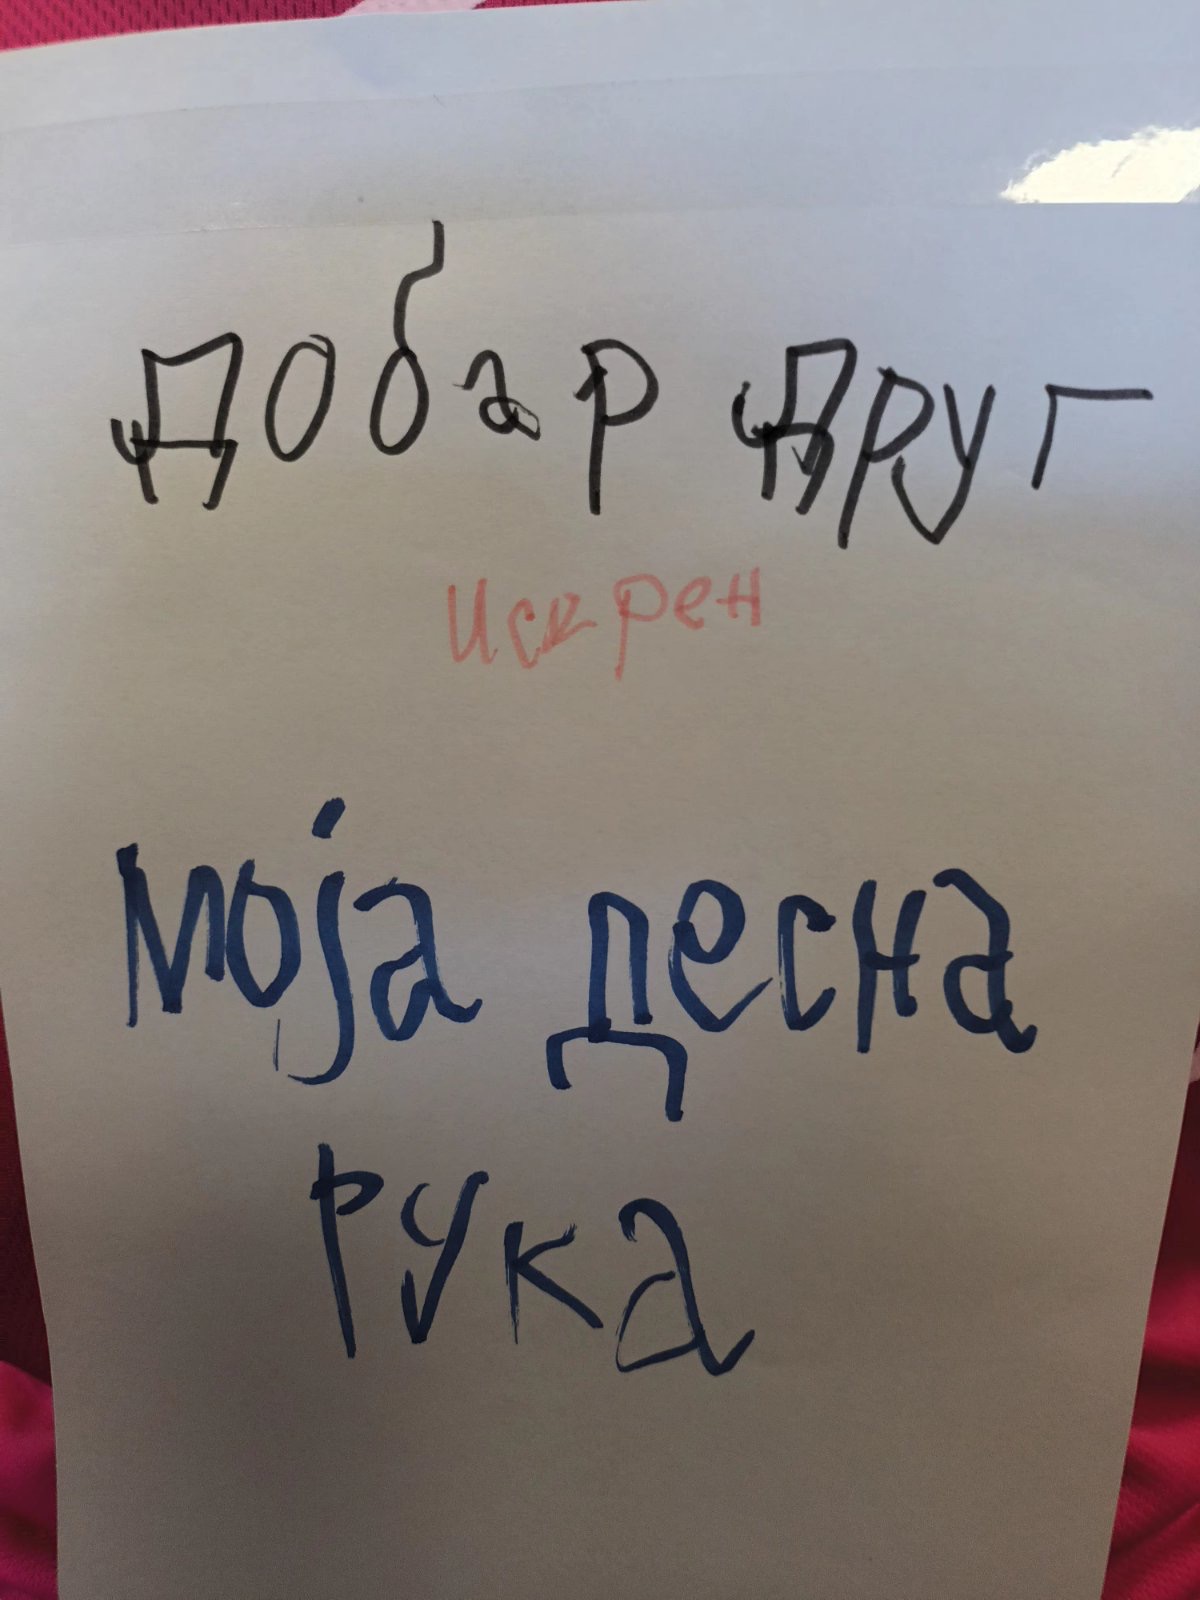 добар друг
искрен
моја десна
рука